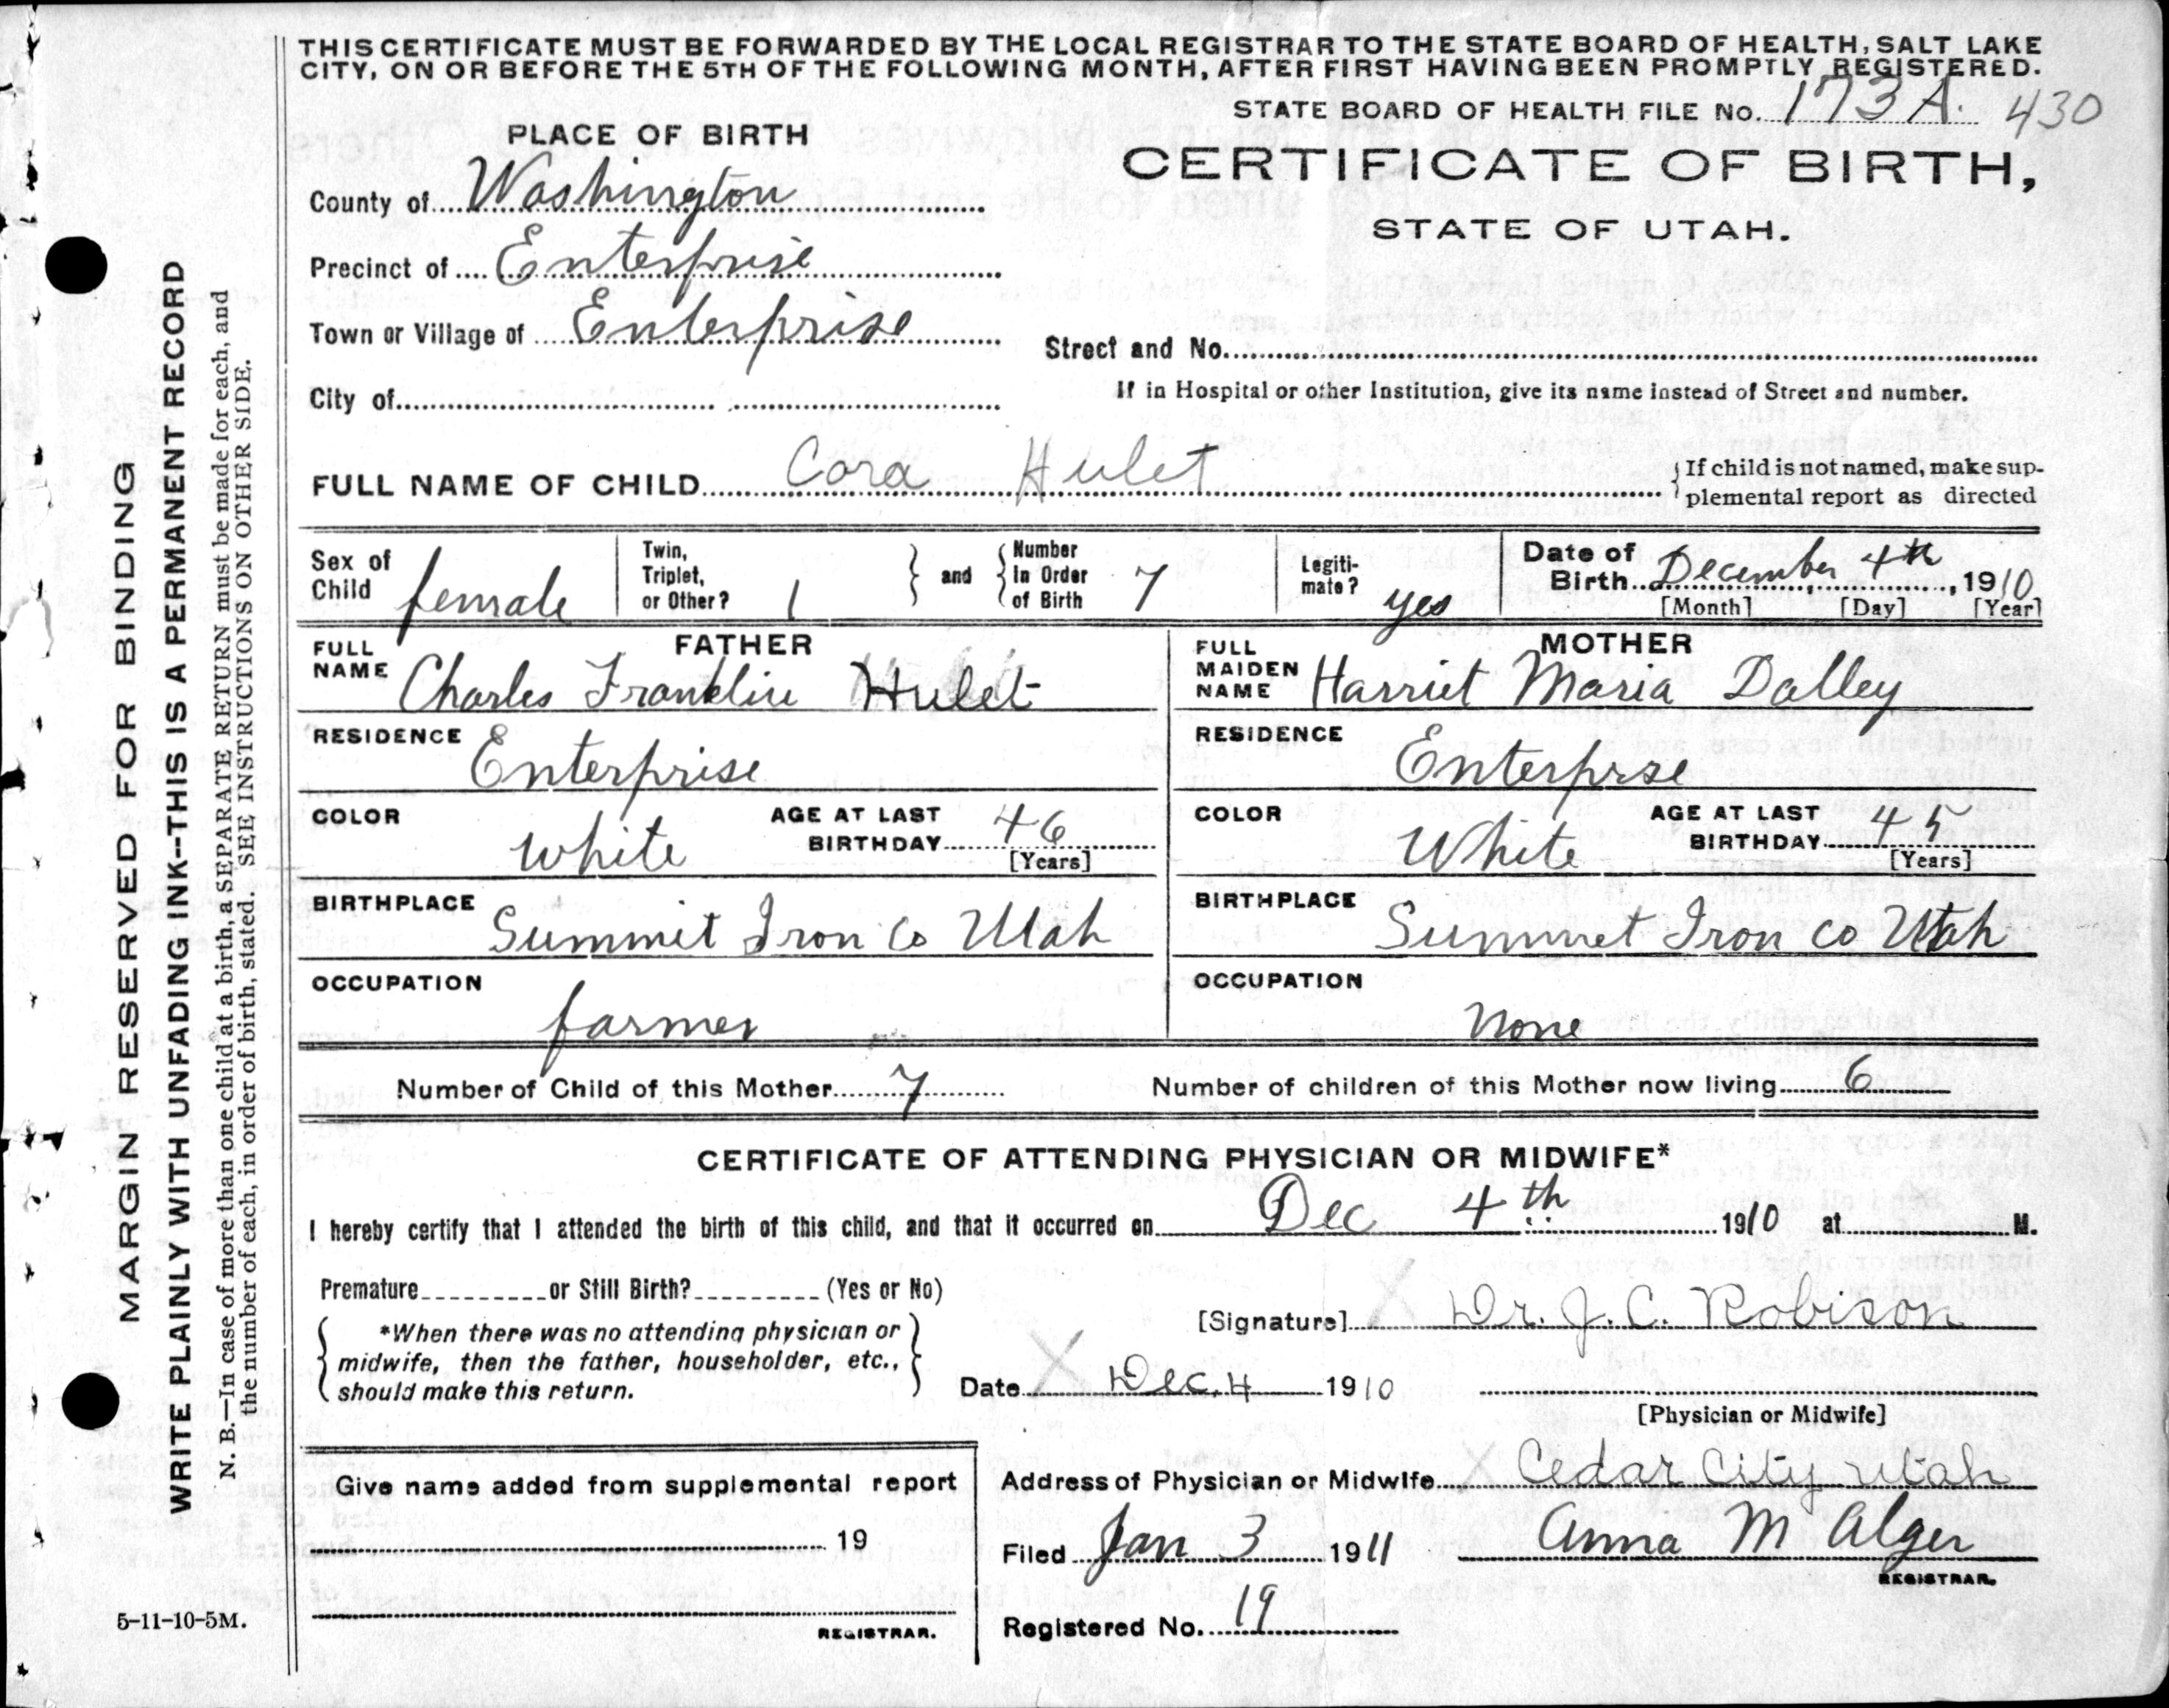 THIS CERTIFICATE MUST BE FORWARDED BY THE LOCAL REGISTRAR TO THE STATE BOARD OF HEALTH, SALT LAKE
CITY, ON OR BEFORE THE 5TH OF THE FOLLOWING MONTH, AFTER FIRST HAVING BEEN PROMPTLY REGISTERED.
STATE BOARD OF HEALTH FILE No. 173 A. 430
PLACE OF BIRTH
CERTIFICATE OF BIRTH,
STATE OF UTAH.
County of Washington
Precinct of Enterprise
Town or Village of Enterprise
Street and No.
City of
If in Hospital or other Institution, give its name instead of Street and number.
FULL NAME OF CHILD Cora Hulet
If child is not named, make sup-
plemental report as directed
Sex of Child female
Twin, Triplet, or Other? 1
and Number In Order of Birth 7
Legiti-mate? yes
Date of Birth December 4th, 1910
[Month] [Day] [Year]
FATHER
FULL NAME Charles Franklin Hulet
RESIDENCE Enterprise
COLOR White
AGE AT LAST BIRTHDAY 46
[Years]
BIRTHPLACE Summit Iron Co Utah
OCCUPATION farmer
MOTHER
FULL MAIDEN NAME Harriet Maria Dalley
RESIDENCE Enterprse
COLOR White
AGE AT LAST BIRTHDAY 45
[Years]
BIRTHPLACE Summet Iron Co Utah
OCCUPATION None
Number of Child of this Mother 7 Number of children of this Mother now living 6
CERTIFICATE OF ATTENDING PHYSICIAN OR MIDWIFE*
I hereby certify that I attended the birth of this child, and that it occurred on Dec 4th 1910 at M.
Premature or Still Birth? (Yes or No)
*When there was no attending physician or
midwife, then the father, householder, etc.,
should make this return.
[Signature] X Dr. J. C. Robison
Date X Dec. 4 1910
[Physician or Midwife]
Give name added from supplemental report
19
REGISTRAR.
Address of Physician or Midwife X Cedar City Utah
Filed Jan 3 1911 Anna M Alger
REGISTRAR.
Registered No. 19
MARGIN RESERVED FOR BINDING
WRITE PLAINLY WITH UNFADING INK--THIS IS A PERMANENT RECORD
N. B.—In case of more than one child at a birth, a SEPARATE RETURN must be made for each, and
the number of each, in order of birth, stated. SEE INSTRUCTIONS ON OTHER SIDE.
5-11-10-5M.